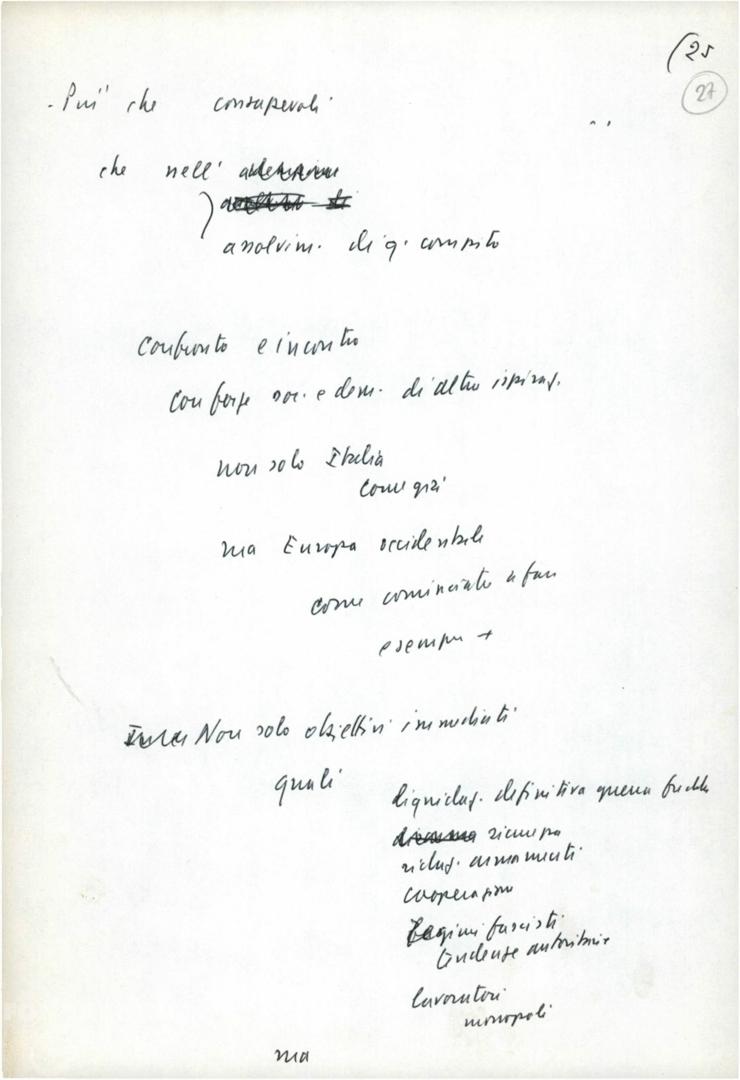 (25
27
- Più che consapevoli
che nell'
assolvim. di q. compito
Confronto e incontro
con forze soc. e dem. di altra ispiraz.
non solo Italia
come già
ma Europa occidentale
come cominciato a fare
esempio +
Non solo obiettivi immediati
quali
liquidaz. definitiva guerra fredda
sicurezza
riduz. armamenti
cooperazione
Regimi fascisti
tendenze autoritarie
lavoratori
monopoli
ma